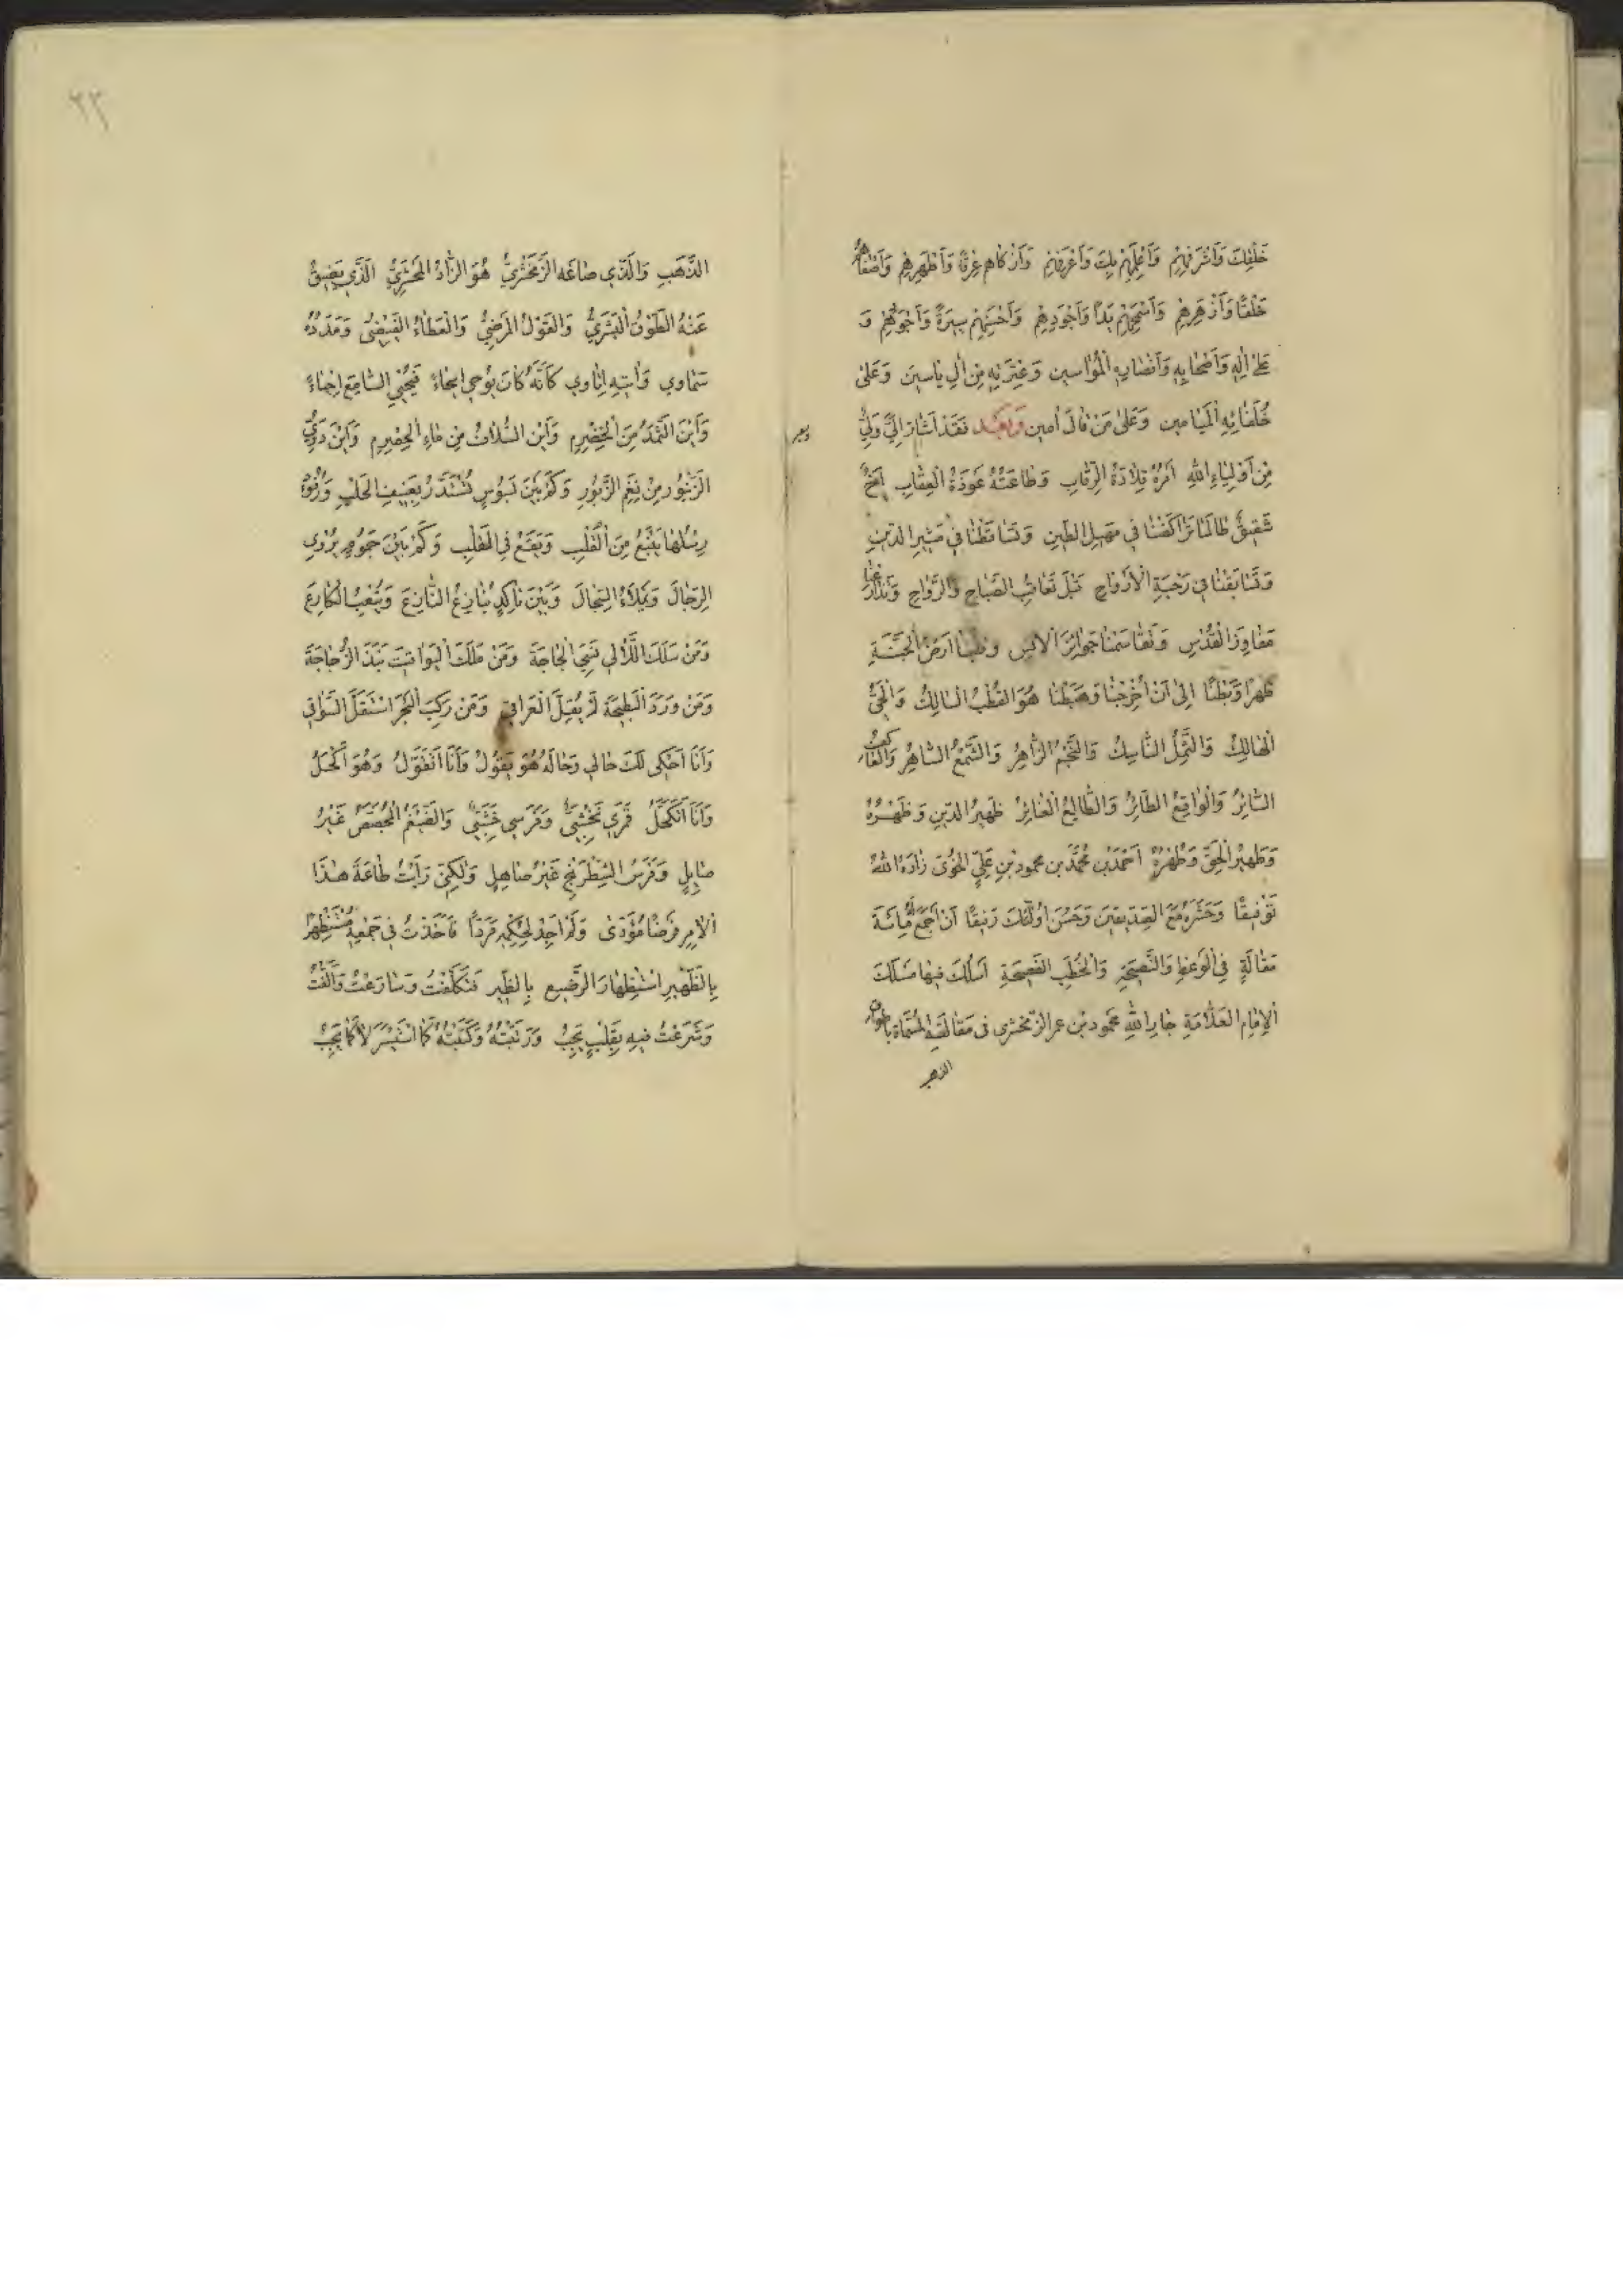 خَلْقِكَ وَأَشْرَفِهِمْ وَأَعْلَمِهِمْ بِكَ وَأَعْرَفِهِمْ وَأَزْكَاهُمْ عِرْقًا وَأَطْهَرِهِمْ وَأَصْفَاهُمْ
خَلْقًا وَأَزْهَرِهِمْ وَأَسْمَحِهِمْ يَدًا وَأَجْوَدِهِمْ وَأَحْسَنِهِمْ سِيرَةً وَأَجْوَدِهِمْ وَ
عَلَى آلِهِ وَأَصْحَابِهِ وَأَنْصَارِهِ الْمُؤَاسِينَ وَعِتْرَتِهِ مِنْ آلِ يَاسِينَ وَعَلَى
خُلَفَائِهِ الْمَيَامِينِ وَعَلَى مَنْ قَالَ آمِينَ وَبَعْدُ فَقَدْ أَشَارَ إِلَيَّ وَلِيٌّ
مِنْ أَوْلِيَاءِ اللهِ أَمْرُهُ قِلَادَةُ الرِّقَابِ وَطَاعَتُهُ عُوذَةُ الْعِقَابِ أَخٌ
شَقِيقٌ طَالَمَا تَرَاكَضْنَا فِي مَهِيلِ الطِّينِ وَتَسَاقَطْنَا فِي الدِّينِ
وَتَسَابَقْنَا فِي رَحْبَةِ الْأَرْوَاحِ قَبْلَ تَعَاقُبِ الصَّبَاحِ وَالرَّوَاحِ
مَفَاوِزَ الْقُدْسِ وَتَقَاسَمْنَا جَوَائِزَ الْأُنْسِ وَطُفْنَا أَرْضَ الْجَنَّةِ
ظَهْرًا وَبَطْنًا إِلَى أَنْ أُخْرِجْنَا وَهَبَطْنَا هُوَ الْقُطْبُ السَّالِكُ وَالْحَيُّ
الْهَالِكُ وَالثَّمِلُ النَّاسِكُ وَالنَّجْمُ الزَّاهِرُ وَالشَّمْعُ السَّاهِرُ وَالْعَاكِفُ
السَّائِرُ وَالْوَاقِعُ الطَّائِرُ وَالطَّالِعُ الْغَائِرُ ظَهِيرُ الدِّينِ وَظَهْرُهُ
وَظَهِيرُ الْحَقِّ وَظَهْرُهُ أَحْمَدُ بْنُ مُحَمَّدِ بْنِ مَحْمُودِ بْنِ عَلِيٍّ الْخُوَيِّ زَادَهُ اللهُ
تَوْفِيقًا وَحَشَرَهُ مَعَ الصِّدِّيقِينَ وَحَسُنَ أُولَئِكَ رَفِيقًا أَنْ أَجْمَعَ لَهُ مِائَةَ
مَقَالَةٍ فِي الْوَعْظِ وَالنَّصِيحَةِ وَالْخُطَبِ الْفَصِيحَةِ أَسْلُكُ فِيهَا مَسْلَكَ
الْإِمَامِ الْعَلَّامَةِ جَارِ اللهِ مَحْمُودِ بْنِ عُمَرَ الزَّمَخْشَرِي فِي مَقَالَتِهِ الْمُسَمَّاةِ بِأَطْوَاقِ
الذهب
٢٣
الذَّهَبِ وَالَّذِي صَاغَهُ الزَّمَخْشَرِيُّ هُوَ الزَّادُ الْمَحْشَرِيُّ الَّذِي يَضِيقُ
عَنْهُ الطَّوْقُ الْبَشَرِيُّ وَالْقَوْلُ الْمَرْضِيُّ وَالْعَطَاءُ الْفَيْضِيُّ وَمَدَدُهُ
سَمَاوِي وَأَتِيُّهُ إِتَاوِي كَأَنَّهُ كَانَ يُوحَى إِيحَاءً فَيُحْيِي السَّامِعَ إِحْيَاءً
وَأَيْنَ الثَّمَدُ مِنَ الْخِضْرِمِ وَأَيْنَ السُّلَافُ مِنْ مَاءِ الْحِصْرِمِ وَأَيْنَ دَوِيُّ
الزُّنْبُورِ مِنْ نَغَمِ الزَّبُورِ وَكَمْ بَيْنَ لَبُوسٍ تُسْتَدَرُّ بِعَنِيفِ الْحَلْبِ
رِسْلُهَا يَنْبُعُ مِنَ الْقَلْبِ وَيَقَعُ فِي الْمَحْلَبِ وَكَمْ بَيْنَ جَمُومٍ يُرْوِي
الرِّجَالَ وَيَمْلَأُ السِّجَالَ وَبَيْنَ نَاكِدٍ يُنَازِعُ النَّازِعَ وَيُتْعِبُ الْكَارِعَ
وَمَنْ سَلَكَ اللَّآلِي نَسِيَ الْجَاجَةَ وَمَنْ مَلَكَ الْيَوَاقِيتَ نَبَذَ الزُّجَاجَةَ
وَمَنْ وَرَدَ الْبَطِيحَةَ لَمْ يُقِلَّ الْعَرَاقِي وَمَنْ رَكِبَ الْبَحْرَ اسْتَقَلَّ السَّوَاقِي
وَأَنَا أَحْكِي لَكَ حَالِي وَحَالَهُ هُوَ يَقُولُ وَأَنَا أَتَقَوَّلُ وَهُوَ أَكْحَلُ
وَأَنَا أَتَكَحَّلُ قَمَرِي نَخْشَبِيٌّ وَفَرَسِي خَشَبِيٌّ وَالضَّيْغَمُ الْمُجَصَّصُ غَيْرُ
صَائِلٍ وَفَرَسُ الشِّطْرَنْجِ غَيْرُ صَاهِلٍ وَلَكِنِّي رَأَيْتُ طَاعَةَ هَذَا
الْأَمْرِ فَرْضًا مُؤَدَّى وَلَمْ أَجِدْ لِحُكْمِهِ مَرَدًّا فَأَخَذْتُ فِي جَمْعِهِ مُسْتَظْهِرًا
بِالظَّهِيرِ اسْتِظْهَارَ الرَّضِيعِ بِالظِّئْرِ فَتَكَلَّفْتُ وَسَارَعْتُ وَأَلَّفْتُ
وَشَرَعْتُ فِيهِ بِقَلْبٍ يَجِبُ وَرَتَّبْتُهُ وَكَتَبْتُهُ كَمَا اسْتَيْسَرَ لَا كَمَا يَجِبُ